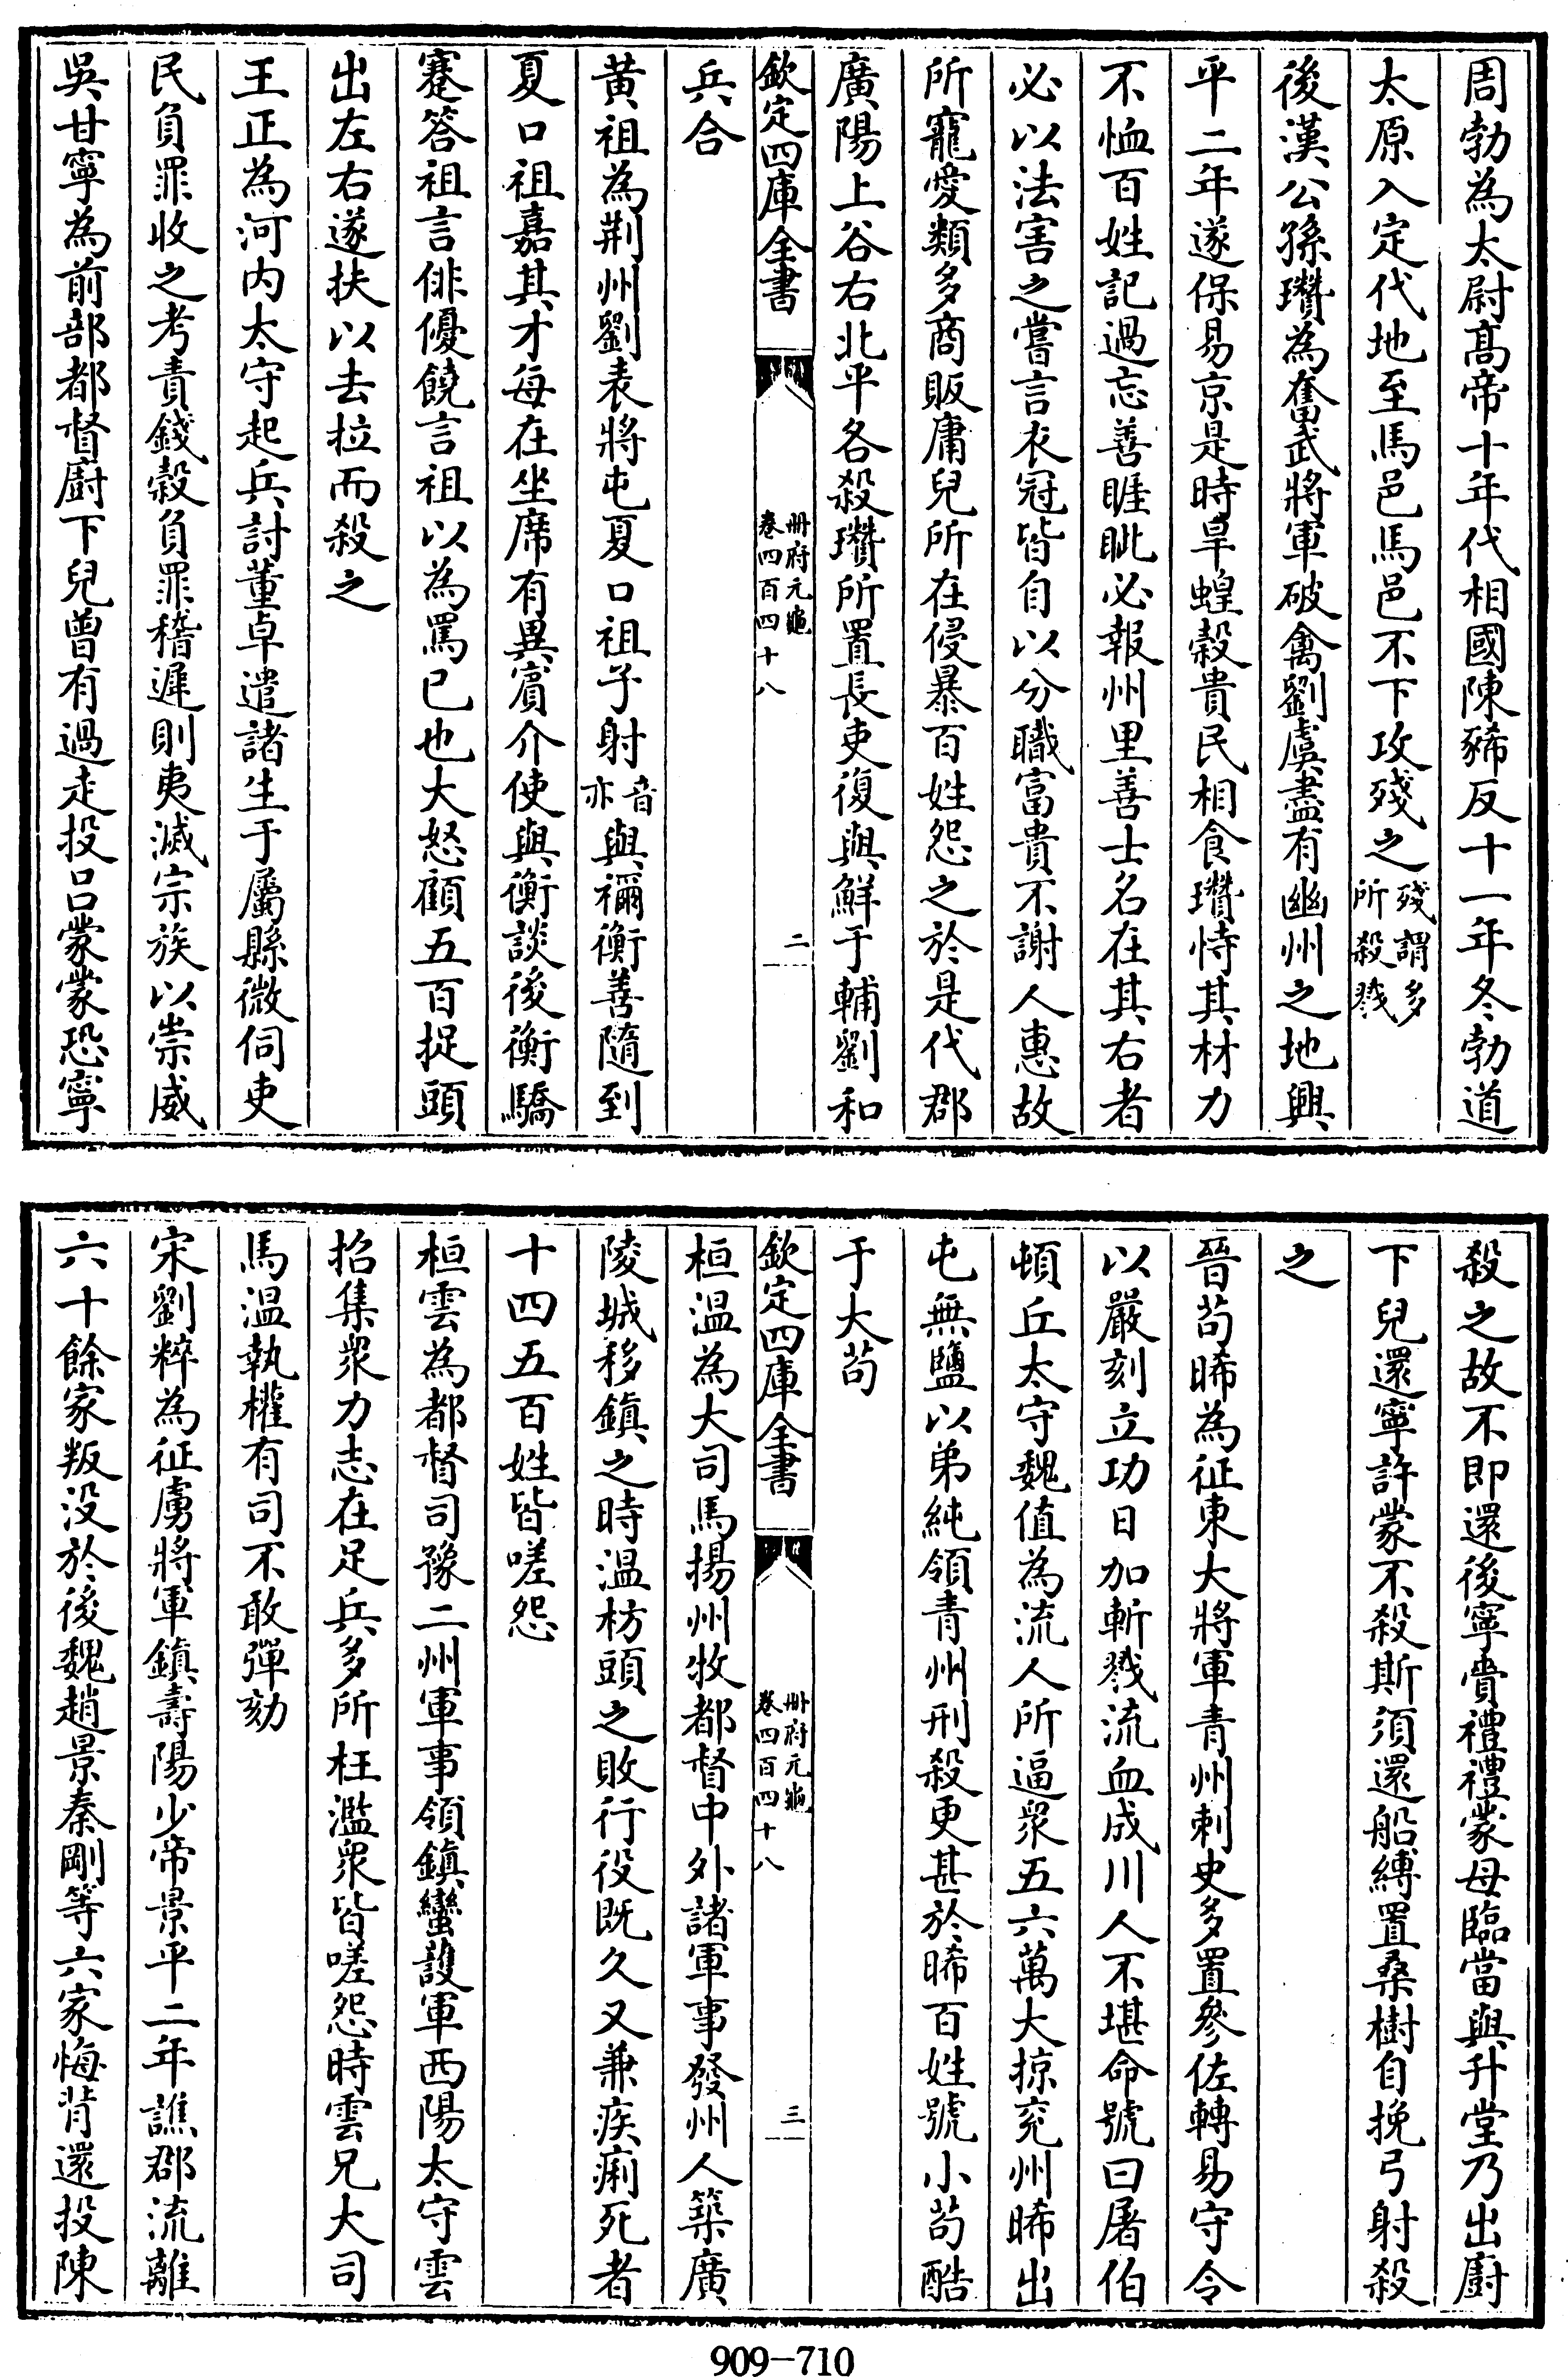 周勃為太尉髙帝十年代相國陳豨反十一年冬勃道
太原入定代地至馬邑馬邑不下攻殘之殘謂多所殺戮
後漢公孫瓚為奮武將軍破禽劉虞盡有幽州之地興
平二年遂保易京是時旱蝗榖貴民相食瓚恃其材力
不恤百姓記過忘善睚眦必報州里善士名在其右者
必以法害之嘗言衣冠皆自以分職富貴不謝人惠故
所寵愛類多商販庸兒所在侵暴百姓怨之於是代郡
廣陽上谷右北平各殺瓚所置長吏復與鮮于輔劉和
欽定四庫全書 冊府元龜卷四百四十八 二
兵合
黄祖為荆州劉表將屯夏口祖子射音亦與禰衡善隨到
夏口祖嘉其才每在坐席有異賓介使與衡談後衡驕
蹇答祖言俳優饒言祖以為罵已也大怒顧五百捉頭
出左右遂扶以去拉而殺之
王正為河内太守起兵討董卓遣諸生于屬縣微伺吏
民負罪收之考責錢榖負罪稽遲則夷滅宗族以崇威
吳甘寧為前部都督廚下兒曾有過走投呂蒙蒙恐寧
殺之故不即還後寧賫禮禮蒙母臨當與升堂乃出廚
下兒還寧許蒙不殺斯須還船縛置桑樹自挽弓射殺
之
晉茍晞為征東大將軍青州刺史多置參佐轉易守令
以嚴刻立功日加斬戮流血成川人不堪命號曰屠伯
頓丘太守魏值為流人所逼衆五六萬大掠兖州晞出
屯無鹽以弟純領青州刑殺更甚於晞百姓號小茍酷
于大茍
欽定四庫全書 冊府元龜卷四百四十八 三
桓温為大司馬揚州牧都督中外諸軍事發州人築廣
陵城移鎮之時温枋頭之敗行役既久又兼疾痢死者
十四五百姓皆嗟怨
桓雲為都督司豫二州軍事領鎮蠻護軍西陽太守雲
招集衆力志在足兵多所枉濫衆皆嗟怨時雲兄大司
馬温執權有司不敢彈劾
宋劉粹為征虜將軍鎮壽陽少帝景平二年譙郡流離
六十餘家叛没於後魏趙景秦剛等六家悔背還投陳
909-710